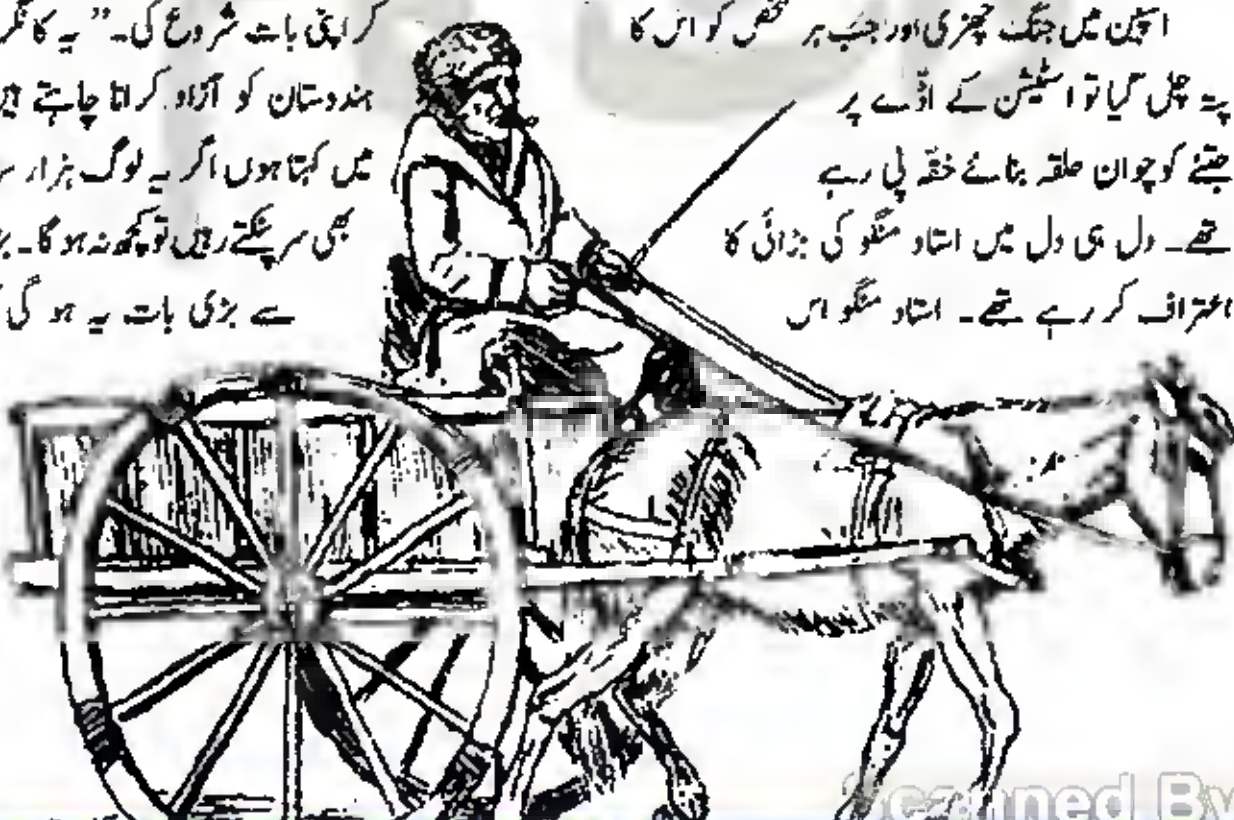 اسپین میں جنگ چھڑی اور جب ہر شخص کو اس کا
پتہ چل گیا تو اسٹیشن کے اڈّے پر
جتنے کوچوان حلقہ بنائے حقّہ پی رہے
تھے۔ دل ہی دل میں استاد منگو کی بڑائی کا
اعتراف کر رہے تھے۔ استاد منگو اس
کر اپنی بات شروع کی۔ ”یہ کانگر
ہندوستان کو آزاد کرانا چاہتے ہیں
میں کہتا ہوں اگر یہ لوگ ہزار سر
بھی سر پٹکتے رہیں تو کچھ نہ ہو گا۔ بڑ
سے بڑی بات یہ ہو گی
Scanned By